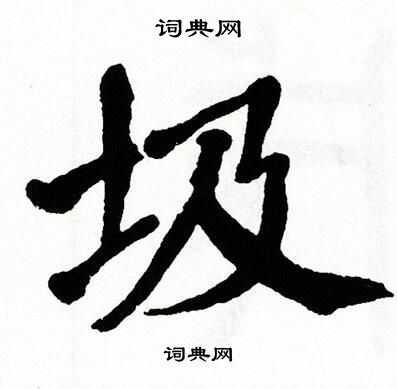 词典网
圾
词典网